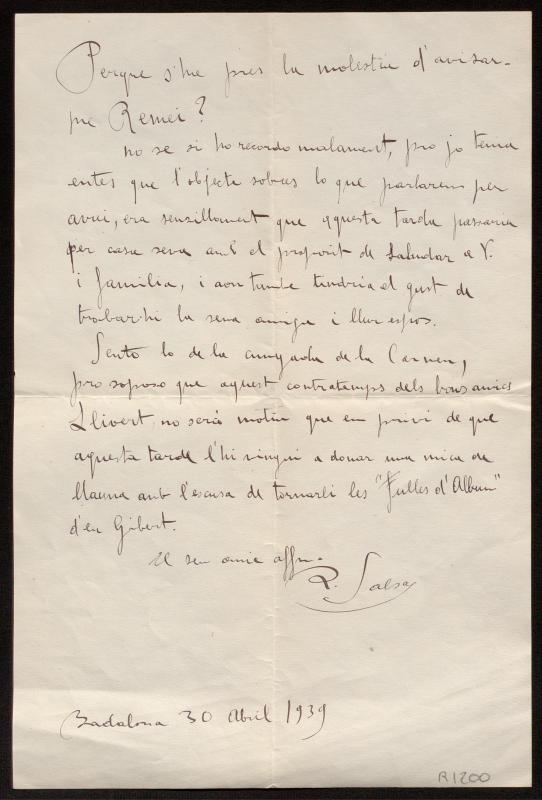 Perque s'ha pres la molestia d'avisar-
me Remei?
no se si ho recordo malament, pro jo tenia
entés que l'objecte sobres lo que parlarem per
avui, era senzillament que aquesta tarda passaria
per casa seva amb el proposit de saludar a V.
i familia, i aon tambe tendria el gust de
trobar-hi la seva amiga i llur espos.
Sento lo de la cunyada de la Carmen,
pro soposo que aquest contratemps dels bons amics
Llivert, no serà motiu que em privi de que
aquesta tarde l'hi vingui a donar una mica de
llauna amb l'escusa de tornarli les "Fulles d'Album"
d'en Gibert.
El seu amic affm.
Salsa
Badalona 30 Abril 1939
R1200